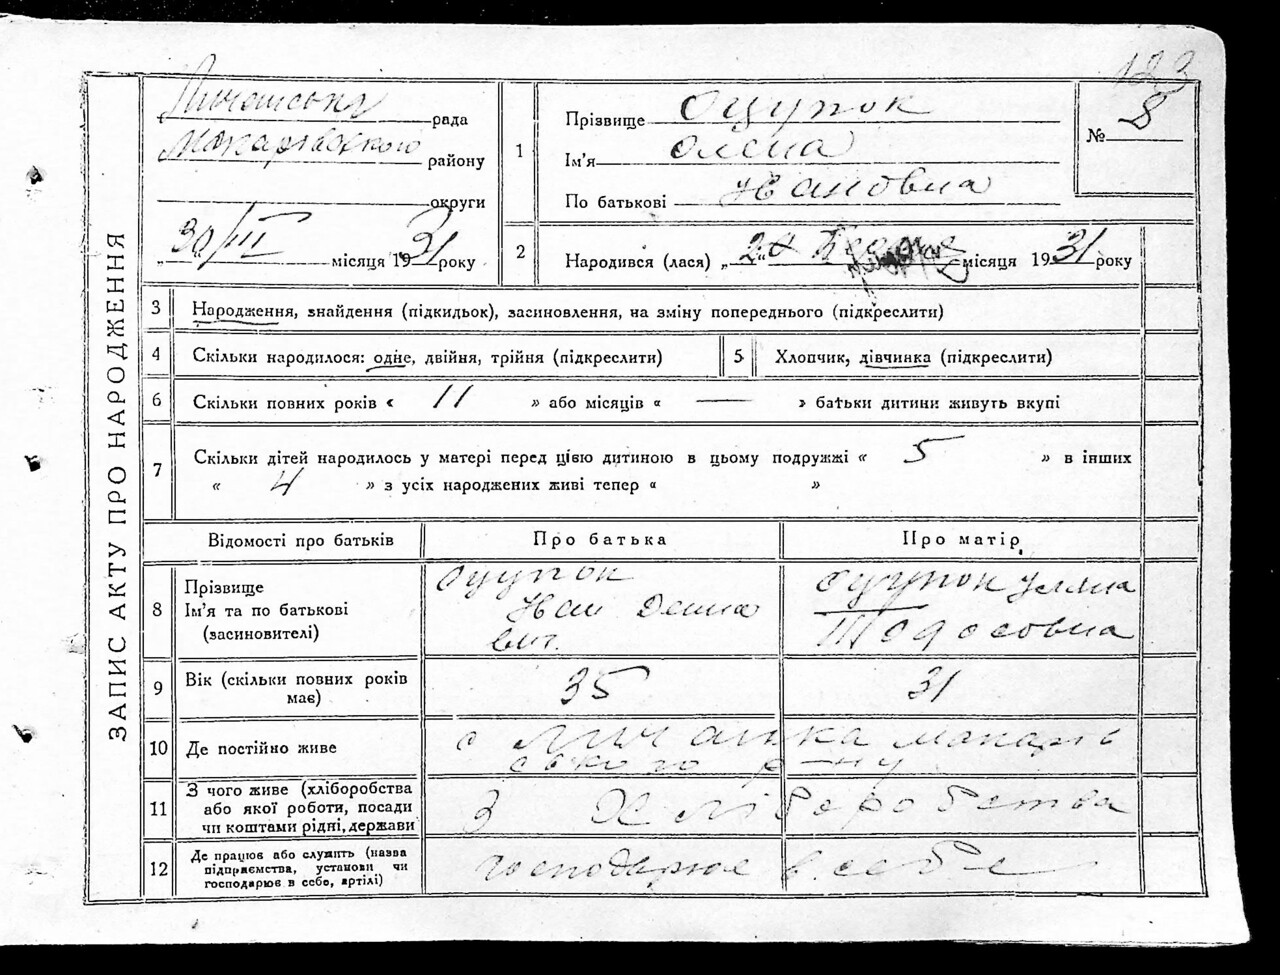 123
Личанська рада
Макарівського району
округи
„30/III" місяця 1931 року
1 Прізвище Оцупок
Ім'я Олена
По батькові Ивановна
№ 8
2 Народився (лася) „20" місяця 1931 року
ЗАПИС АКТУ ПРО НАРОДЖЕННЯ
3 Народження, знайдення (підкидьок), засиновлення, на зміну попереднього (підкреслити)
4 Скільки народилося: одне, двійня, трійня (підкреслити)
5 Хлопчик, дівчинка (підкреслити)
6 Скільки повних років « 11 » або місяців « — » батьки дитини живуть вкупі
7 Скільки дітей народилось у матері перед цією дитиною в цьому подружжі « 5 » в інших
« 4 » з усіх народжених живі тепер « »
Відомості про батьків Про батька Про матір
8 Прізвище
Ім'я та по батькові
(засиновителі)
Оцупок
Иван Деми
вич.
Оцупок Уляна
Тодосовна
9 Вік (скільки повних років
має)
35 31
10 Де постійно живе
с Личанка Макарів
ського р-ну
11 З чого живе (хліборобства
або якої роботи, посади
чи коштами рідні, держави
З Хліборобства
12 Де працює або служить (назва
підприємства, установи чи
господарює в себе, артілі)
господарює в себе